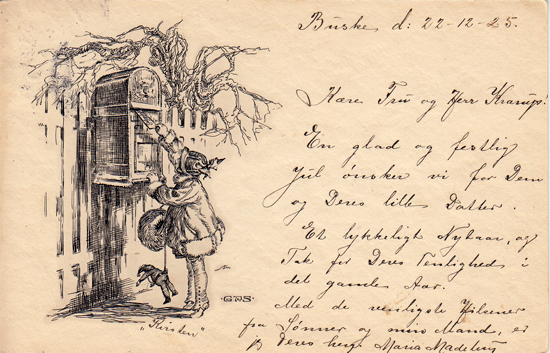 Buske d: 22-12-25.
Kære Fru og Herr Krarup!
En glad og festlig
Jul ønsker vi for Dem
og Deres lille Datter.
Et lykkeligt Nytaar, og
Tak for Deres Venlighed i
det gamle Aar.
Med de venligste Hilsener
fra Sønner og min Mand, er
Deres heng. Maria Madsen
G.W.S.
"Kirsten"